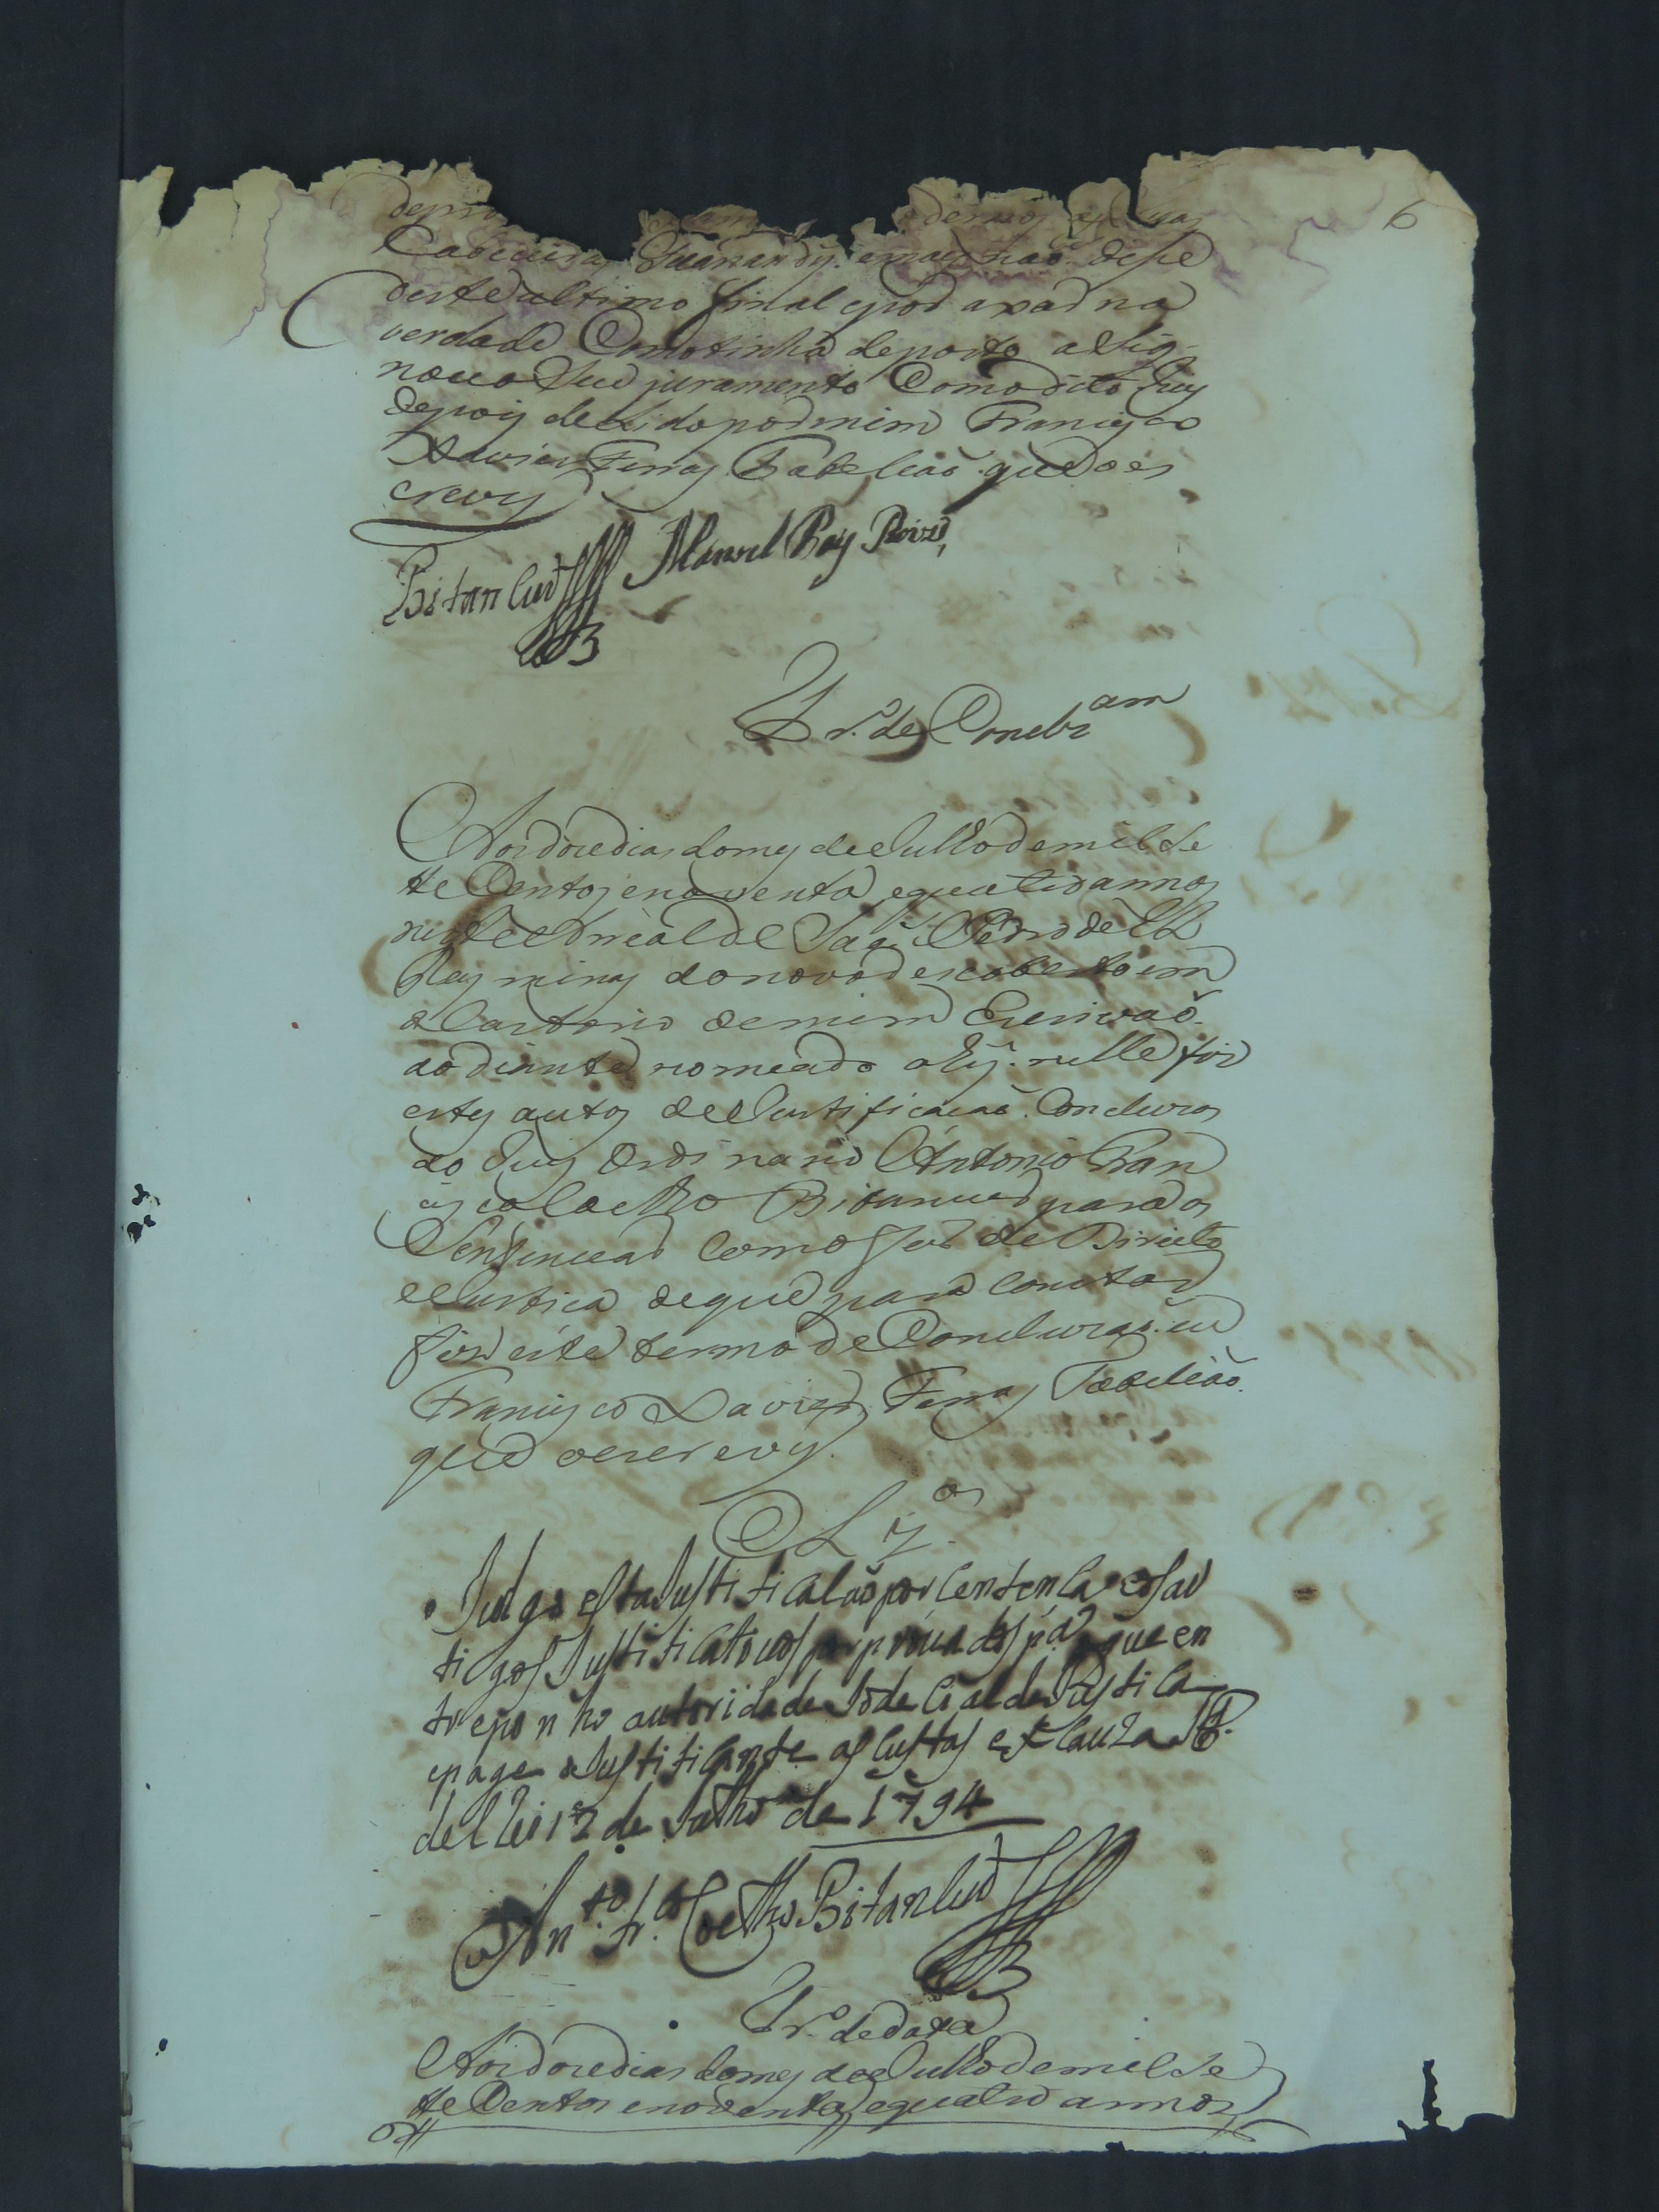 6
verdade Como tinha deposto asig
nou o Seu juramento Com o dito Juis
depois de Lido por mim Francisco
Xavier Ferras Tabeliaõ que o es
crevy
Bitancur Manoel
Tr.o de Concluzam
Aos doze dias do mes de Julho de mil Se
te Centos enoventa equatro annos
neste Arreal de
Rey minas do novo descoberto em
o Cartorio de mim Escrivaõ
ao diante nomeado e nelle fis
estes autos de Justificacaõ Concluzos
ao Juis Ordinario Antonio Fran
cisco Coelho Bitancur para os
Sentenciar como for de Direito
e Justica de que para constar
fis este termo de Concluzaõ eu
Francisco Xavier Ferras Tabeliaõ
que o escrevy
Clz.os
Julgo esta Justificalaõ por Centenla eosar
tigos Justificativos por provados p.a o que en
treponho autoridade Jodecial de Justica
epage o Justificante as Custas ex Cauza
del Rei 12 de Julho de 1794
Ant.o Fr.co Coelho Bitancur
Tr.o de data
Aos doze dias do mes de Julho de mil Se
te Centos enoventa equatro annos